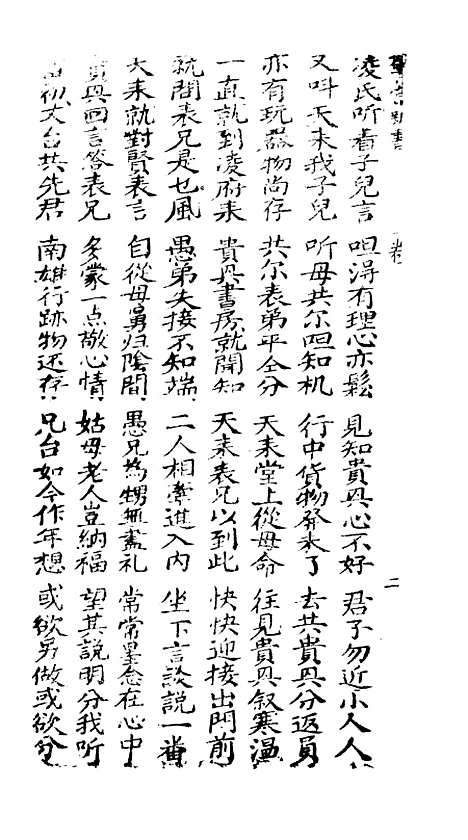 新書 卷 二
凌氏听着子兒言 呾淂有理心亦鬆 見知貴興心不好 君子勿近小人人
又叫天来我子兒 听母共尔呾知机 行中貨物發来了 去共貴興分返員
亦有玩器物尚存 共尔表弟平仝分 天来堂上從母命 往見貴興叙寒温
一直就到凌府来 貴興書房就聞知 天来表兄以到此 快快迎接出門前
就問表兄是乜風 愚弟失接不知端 二人相牽進入内 坐下言談説一番
天来就對賢表言 自從母舅归陰間 愚兄為甥無盡礼 常常里念在心中
貴興回言答表兄 多蒙一点敬心情 姑母老人豈納福 望其説明分我听
初丈台共先君 南雄行跡物还存 兄台如今作年想 或欲另做或欲分